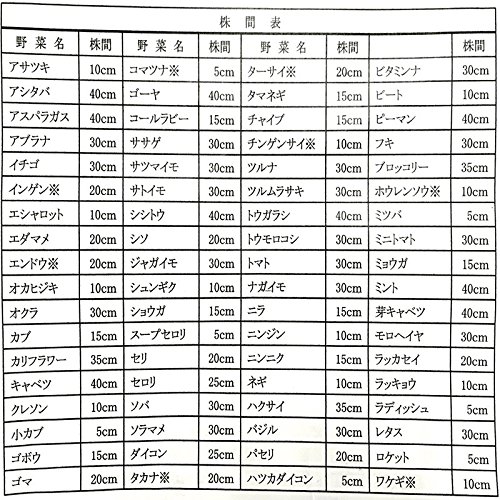 株間表
野菜名 株間 野菜名 株間 野菜名 株間 株間
アサツキ 10cm コマツナ※ 5cm ターサイ※ 20cm ビタミンナ 30cm
アシタバ 40cm ゴーヤ 40cm タマネギ 15cm ビート 10cm
アスパラガス 40cm コールラビー 15cm チャイブ 15cm ピーマン 40cm
アブラナ 30cm ササゲ 30cm チンゲンサイ※ 10cm フキ 30cm
イチゴ 30cm サツマイモ 30cm ツルナ 30cm ブロッコリー 35cm
インゲン※ 20cm サトイモ 30cm ツルムラサキ 30cm ホウレンソウ※ 10cm
エシャロット 10cm シシトウ 40cm トウガラシ 40cm ミツバ 5cm
エダマメ 20cm シソ 20cm トウモロコシ 30cm ミニトマト 30cm
エンドウ※ 20cm ジャガイモ 30cm トマト 30cm ミョウガ 15cm
オカヒジキ 10cm シュンギク 10cm ナガイモ 30cm ミント 40cm
オクラ 30cm ショウガ 15cm ニラ 15cm 芽キャベツ 40cm
カブ 15cm スープセロリ 5cm ニンジン 10cm モロヘイヤ 30cm
カリフラワー 35cm セリ 20cm ニンニク 15cm ラッカセイ 20cm
キャベツ 40cm セロリ 25cm ネギ 10cm ラッキョウ 10cm
クレソン 10cm ソバ 30cm ハクサイ 35cm ラディッシュ 5cm
小カブ 5cm ソラマメ 30cm バジル 30cm レタス 30cm
ゴボウ 15cm ダイコン 25cm パセリ 20cm ロケット 5cm
ゴマ 20cm タカナ※ 20cm ハツカダイコン 5cm ワケギ※ 10cm